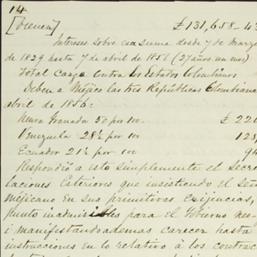 14
[Drenen] £131,658-4
Intereses sobre esa suma desde 7 de Marzo
de 1829 hasta 7 de abril de 1856 (27 años un mes)
Total Cargo contra los Estados Colombianos
Deben a Méjico las tres Repúblicas Colombianas
abril de 1856:
Nueva Granada 50 por 100. £ 220
Venezuela 28½ por 100 125,
Ecuador 21½ por 100 94
Respondió a esto simplemente el Secre
laciones Exteriores que insistiendo el Señ
mejicano en sus primitivas exijencias,
punto inadmisibles para el Gobierno nue
i manifestando ademas carecer hasta
instrucciones en lo relativo á los contrac